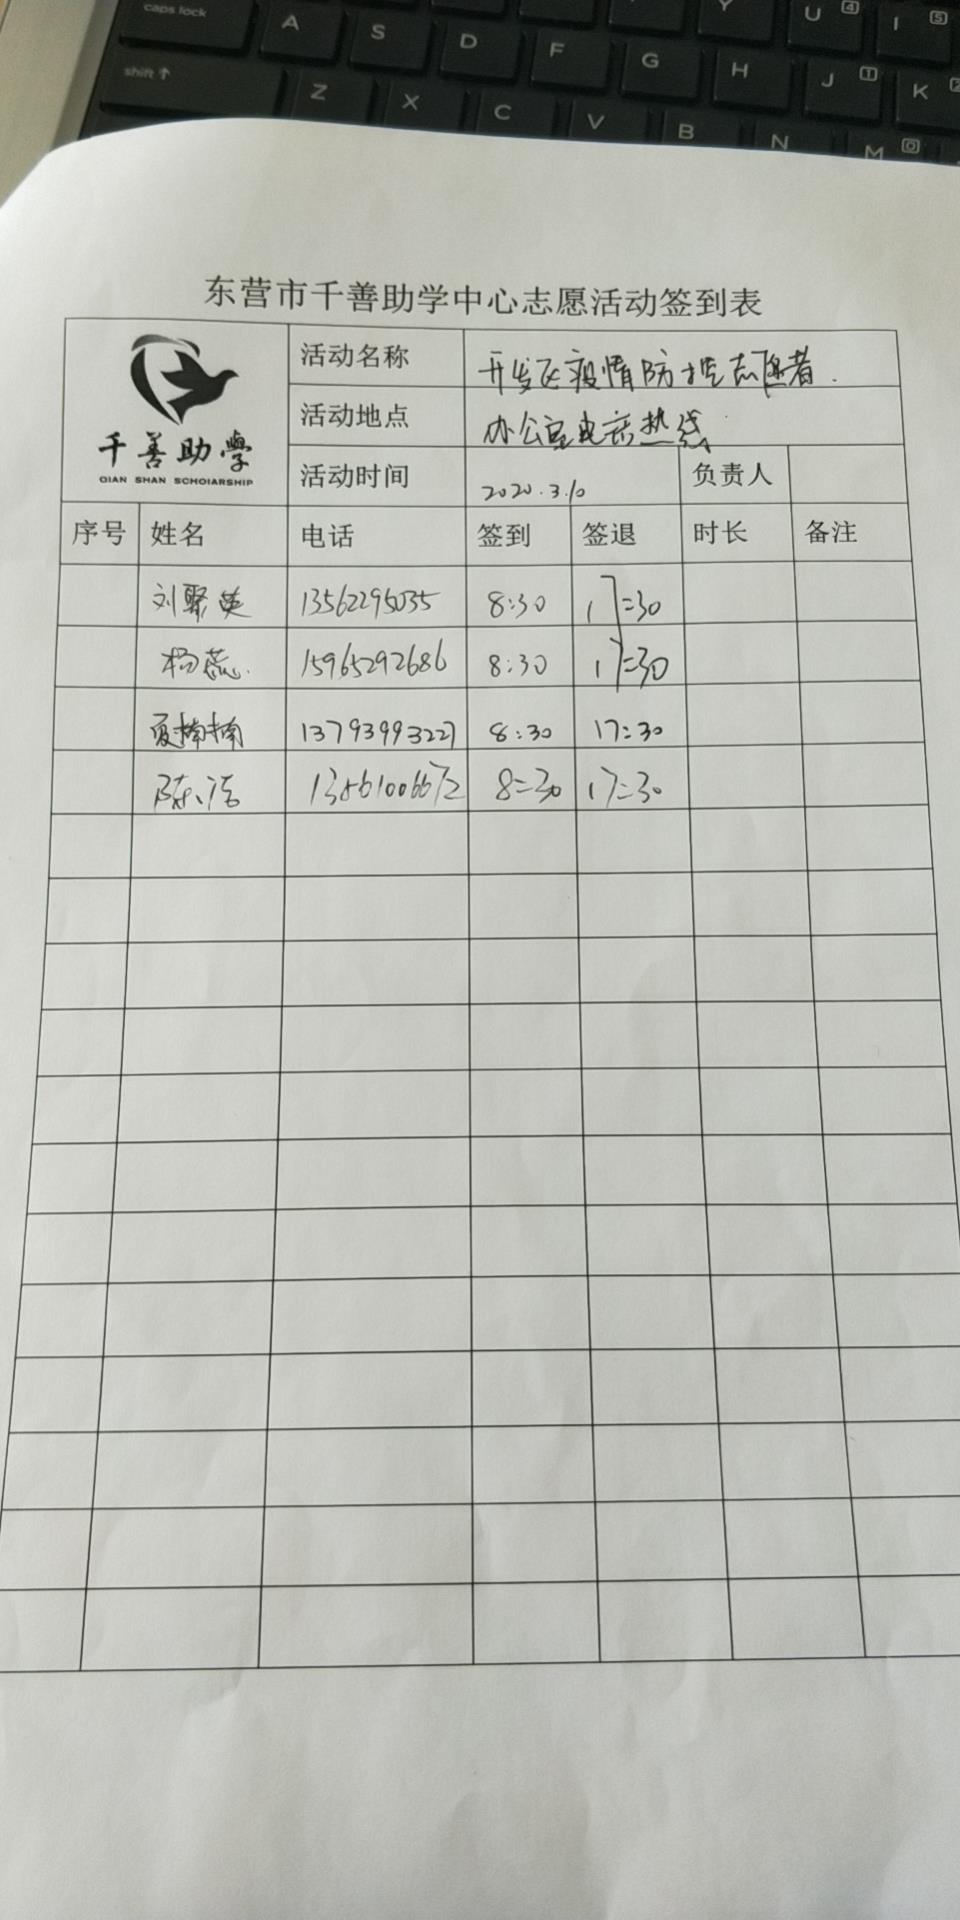 caps lock A S D F G H J 1 K
Y U 4 I 5
shift Z X C V B N M 0
东营市千善助学中心志愿活动签到表
千善助學
QIAN SHAN SCHOIARSHIP
活动名称 开发区疫情防控志愿者.
活动地点 办公室电话热线
活动时间 2020.3.10 负责人
序号 姓名 电话 签到 签退 时长 备注
刘聚英 13562295035 8:30 17:30
杨 15965292686 8:30 17:30
夏楠楠 13793993227 8:30 17:30
陈洁 13561006672 8:30 17:30